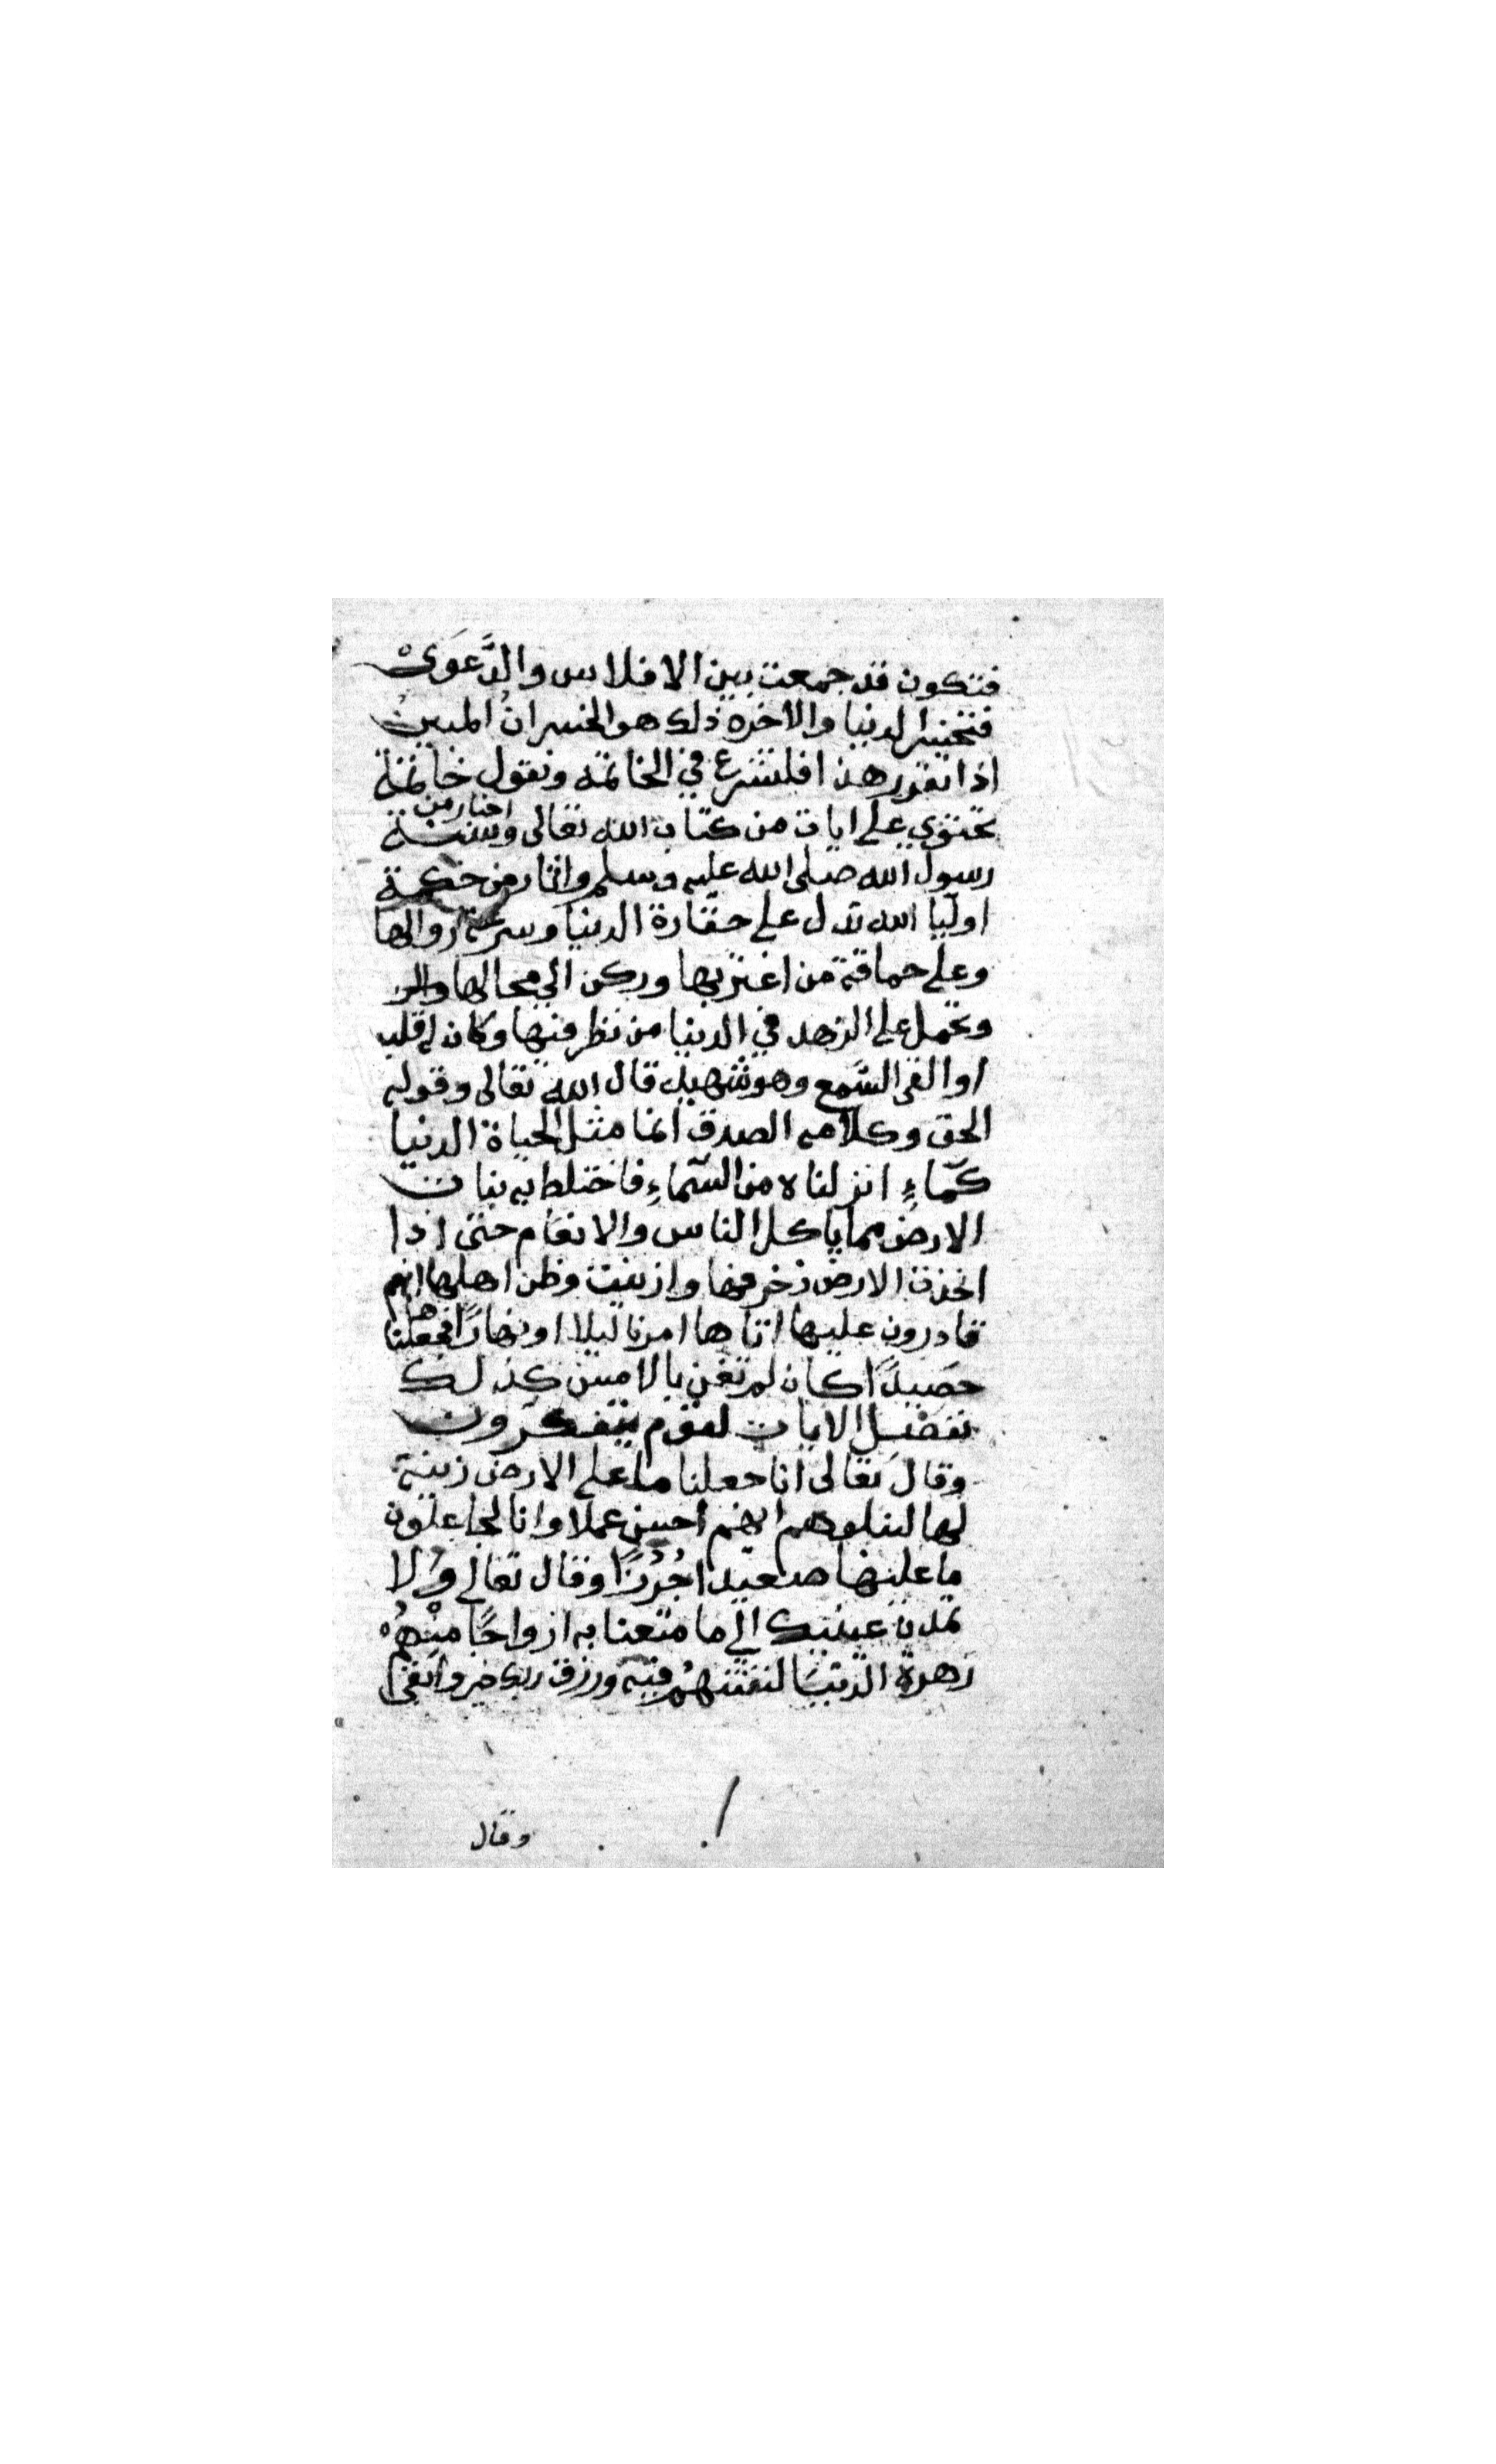 فتكون قد جمعت بين الافلاس والدَّعوَىْ
فتخسر الدنيا والاخره ذلك هو الخسرانُ المبينُ
اذا تقرر هذا فلنشرع في الخاتمه ونقول خاتمة
تحتوي على ايات من كتاب الله تعالى واخبار من سنة
رسول الله صلى الله عليه وسلم واثار من حكمة
اوليا الله تدل على حقارة الدنيا وسرعة زوالها
وعلى حماقة من اغتر بها وركن الى محالها
وتحمل على الزهد في الدنيا من نظر فيها وكان له قلب
او القى السّمع وهو شهيد قال الله تعالى وقوله
الحق وكلامه الصدق انما مثل الحياة الدنيا
كمّاءٍ انزلناه من السّماءِ فاختلط به نبات
الارض مما ياكل الناس والانعام حتى اذا
اخذت الارض زخرفها وازينت وظن اهلها انهم
قادرون عليها اتاها امرنا ليلا او نهارًا فجعلناها
حصيدًا كان لم تغن بالامس كذلك
نفصّل الايات لقوم يتفكّرون
وقال تعالى انا جعلنا ما على الارض زينة
لها لنبلوهم ايهم احسن عملا وانا لجاعلون
ما عليها صعيدا جُرُزًا وقال تعالى وَلا
تمدن عينيك الى ما متعنا به ازواجًا منْهُمْ
زَهرة الدنيَا لنفتنهُم فيه ورزق ربك خير وابقى
وقال